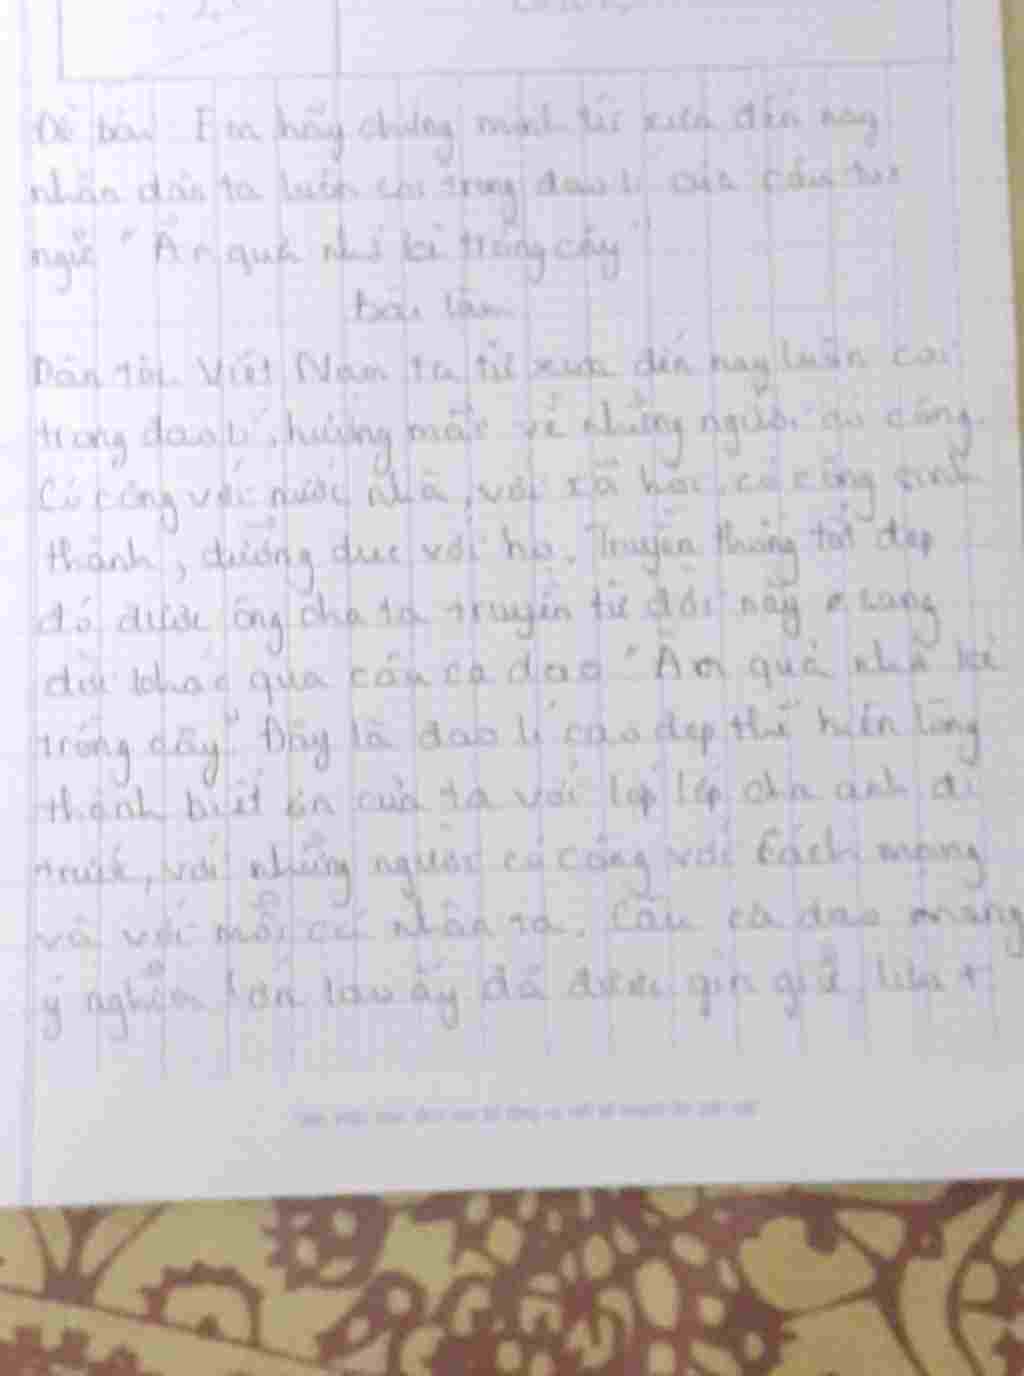 Đề bài Em hãy chứng minh từ xưa đến nay
nhân dân ta luôn coi trọng đạo lí của câu tục
ngữ "Ăn quả nhớ kẻ trồng cây"
bài làm
Dân tộc Việt Nam ta từ xưa đến nay luôn coi
trọng đạo lí, hướng mắt về những người có công.
Có công với nước nhà, với xã hội, có công sinh
thành, dưỡng dục với họ. Truyền thống tốt đẹp
đó được ông cha ta truyền từ đời này sang
đời khác qua câu ca dao "Ăn quả nhớ kẻ
trồng cây" Đây là đạo lí cao đẹp thể hiện lòng
thành biết ơn của ta với lớp lớp cha anh đi
trước, với những người có công với Cách mạng
và với mỗi cá nhân ta. Câu ca dao mang
ý nghĩa lớn lao ấy đã được gìn giữ,